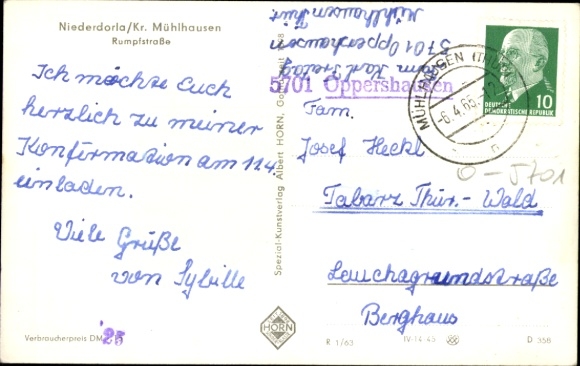 Niederdorla/Kr. Mühlhausen
Rumpfstraße
Ich möchte Euch
herzlich zu meiner
Konfirmation am 11.4.
einladen.
Viele Grüße
von Sybille
Verbraucherpreis DM 25
Spezial-Kunstverlag Albert HORN, Gotha
HORN
Karl Freitag
5701 Oppershausen
Mühlhausen Thür.
5701 Oppershausen
MÜHLHAUSEN (THÜR)
-6.4.65-12
DEUTSCHE
DEMOKRATISCHE REPUBLIK
10
Fam.
Josef Heckl
O-5701
Tabarz Thür.-Wald
Leuchagrundstraße
Berghaus
R 1/63
IV-14-45
D 358